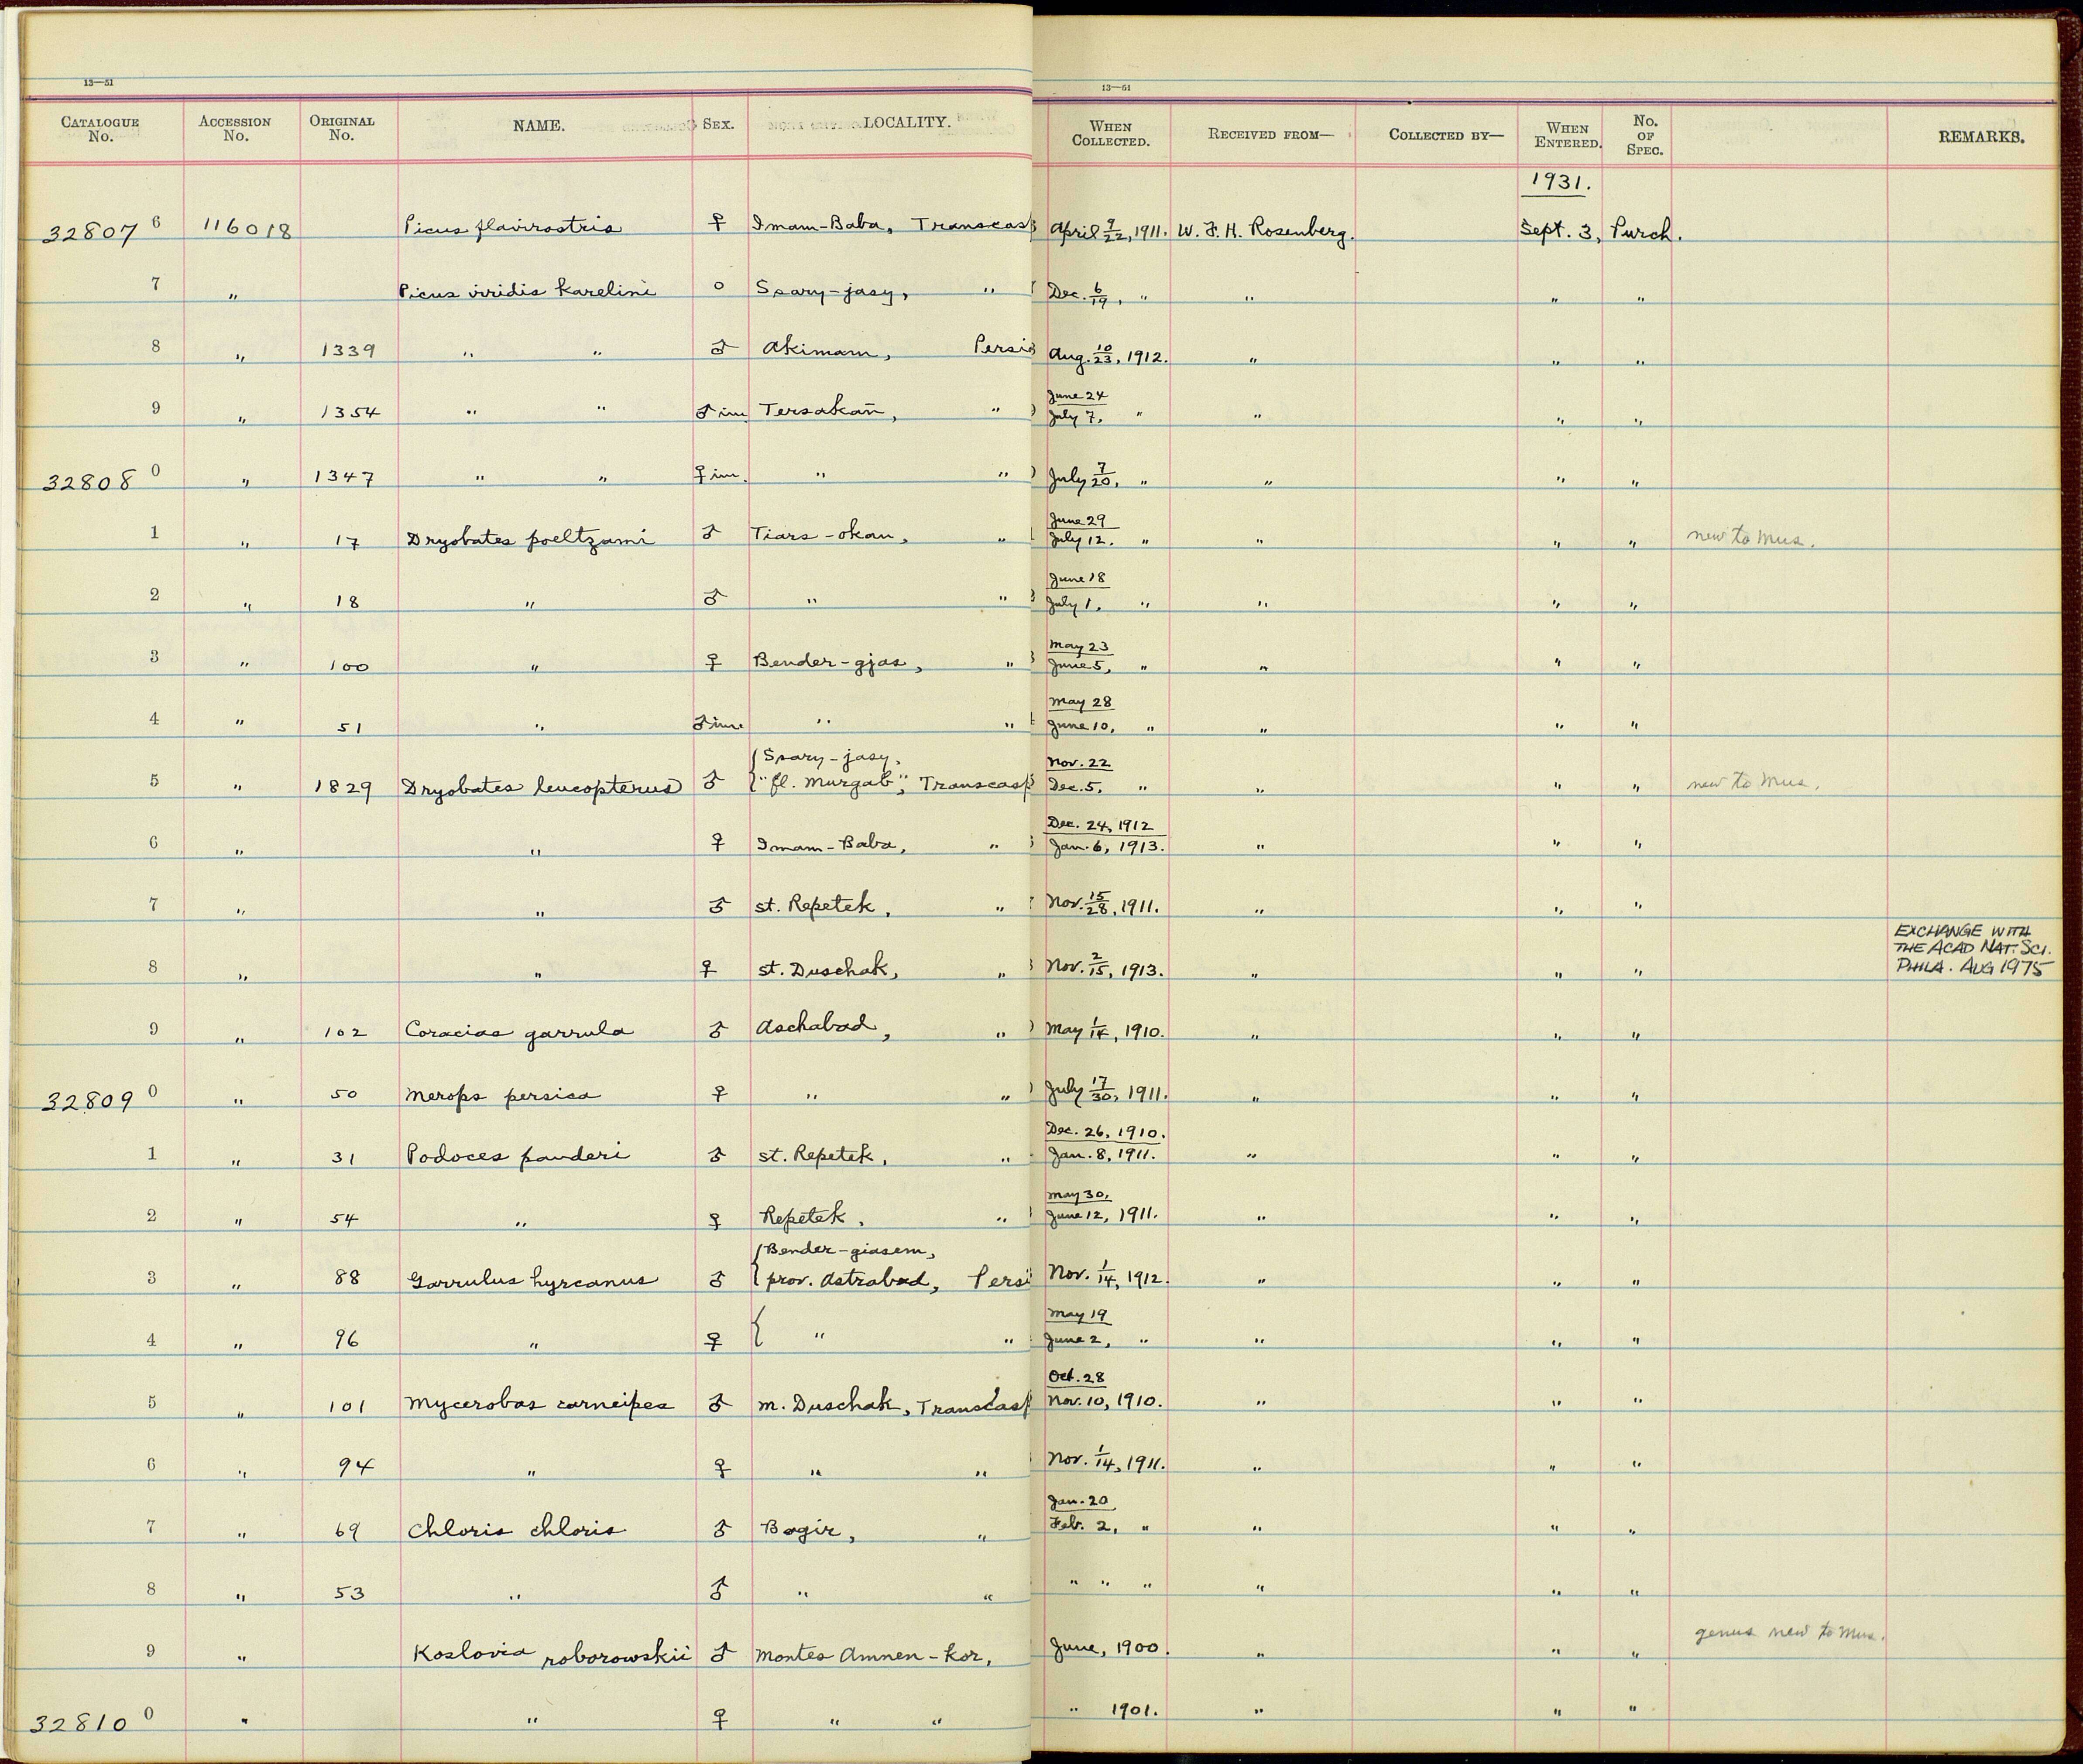 13—51
13—51
CATALOGUE No. ACCESSION No. ORIGINAL No. NAME. SEX. LOCALITY. WHEN COLLECTED. RECEIVED FROM— COLLECTED BY— WHEN ENTERED. No. OF SPEC. REMARKS.
1931.
32807 6 116018 Picus flavirostris ♀ Imam-Baba, Transcasp April 9/22, 1911. W. F. H. Rosenberg. Sept. 3, Purch.
7 " Picus viridis karelini o Ssary-jasy, " Dec. 6/19, " " " "
8 " 1339 " " ♂ Akimam, Persia Aug. 10/23, 1912. " " "
9 " 1354 " " ♂ im. Tersakan, " June 24 / July 7, " " " "
32808 0 " 1347 " " ♀ im. " " July 7/20, " " " "
1 " 17 Dryobates poeltzami ♂ Tiars-okan, " June 29 / July 12. " " " " new to Mus.
2 " 18 " ♂ " " June 18 / July 1, " " " "
3 " 100 " ♀ Bender-gjas, " May 23 / June 5, " " " "
4 " 51 " ♂ im. " " May 28 / June 10, " " " "
5 " 1829 Dryobates leucopterus ♂ { Ssary-jasy, "fl. Murgab", Transcasp Nov. 22 / Dec. 5, " " " " new to Mus.
6 " " ♀ Imam-Baba, " Dec. 24, 1912 / Jan. 6, 1913. " " "
7 " " ♂ st. Repetek, " Nov. 15/28, 1911. " " "
8 " " ♀ st. Duschak, " Nov. 2/15, 1913. " " " EXCHANGE WITH THE ACAD NAT. SCI. PHILA. AUG 1975
9 " 102 Coracias garrula ♂ Aschabad, " May 1/14, 1910. " " "
32809 0 " 50 Merops persica ♀ " " July 17/30, 1911. " " "
1 " 31 Podoces panderi ♂ st. Repetek, " Dec. 26, 1910. / Jan. 8, 1911. " " "
2 " 54 " ♀ Repetek, " May 30, / June 12, 1911. " " "
3 " 88 Garrulus hyrcanus ♂ { Bender-giasem, prov. Astrabad, Persi Nov. 1/14, 1912. " " "
4 " 96 " ♀ { " " May 19 / June 2, " " " "
5 " 101 Mycerobas carneipes ♂ m. Duschak, Transcasp Oct. 28 / Nov. 10, 1910. " " "
6 " 94 " ♀ " " Nov. 1/14, 1911. " " "
7 " 69 Chloris chloris ♂ Bagir, " Jan. 20 / Feb. 2, " " " "
8 " 53 " ♂ " " " " " " " "
9 " Koslovia roborowskii ♂ Montes Amnen-kor, June, 1900. " " " genus new to Mus.
32810 0 " " ♀ " " " 1901. " " "